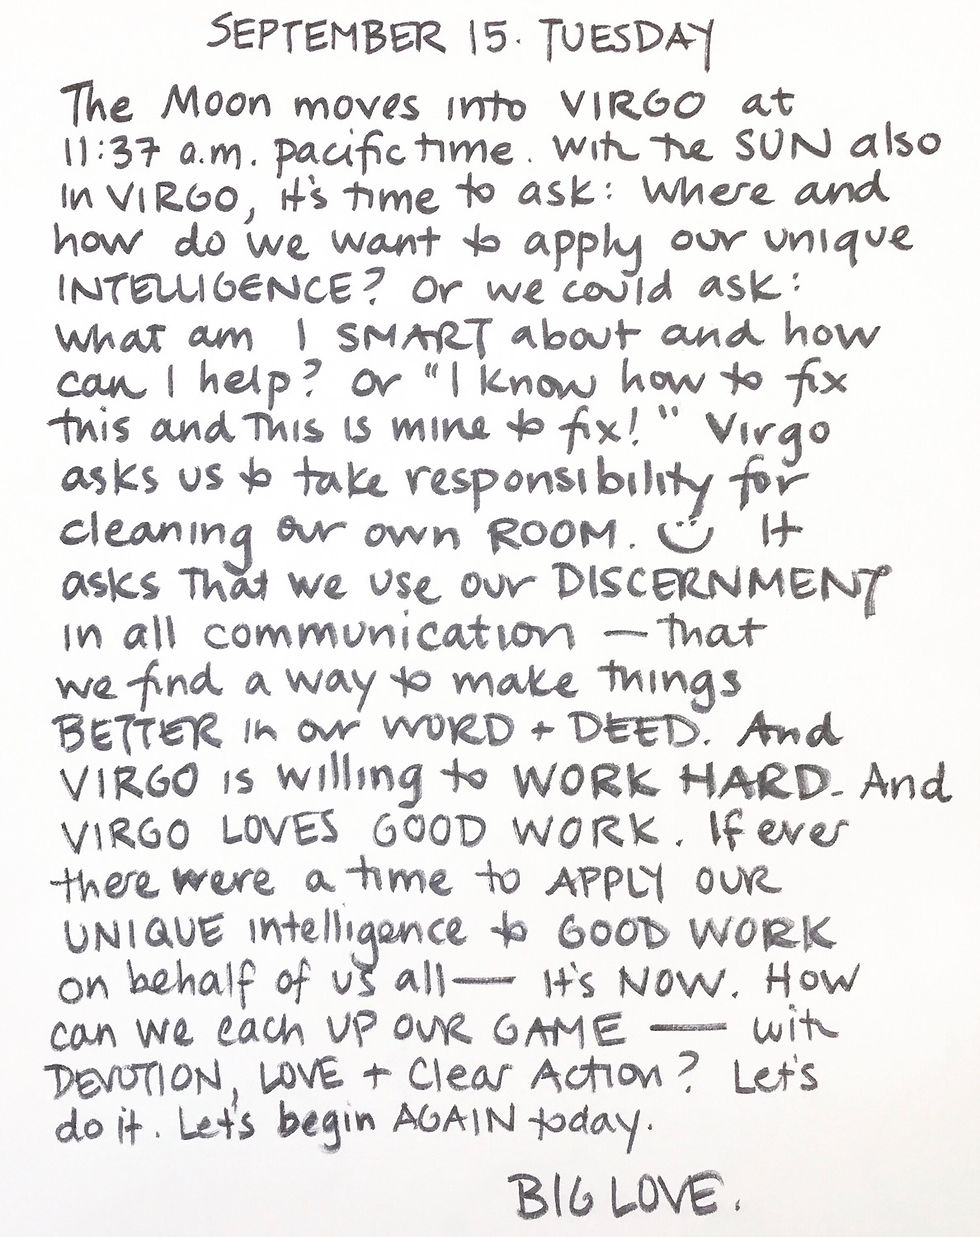 SEPTEMBER 15. TUESDAY
The Moon moves into VIRGO at
11:37 a.m. pacific time. With the SUN also
in VIRGO, it's time to ask: Where and
how do we want to apply our unique
INTELLIGENCE? Or we could ask:
What am I SMART about and how
can I help? Or "I know how to fix
this and This is mine to fix!" Virgo
asks us to take responsibility for
cleaning our own ROOM. It
asks That we use our DISCERNMENT
in all communication — that
we find a way to make things
BETTER in our WORD + DEED. And
VIRGO is willing to WORK HARD. And
VIRGO LOVES GOOD WORK. If ever
there were a time to APPLY OUR
UNIQUE intelligence to GOOD WORK
on behalf of us all — It's NOW. How
can we each UP OUR GAME — with
DEVOTION, LOVE + Clear Action? Let's
do it. Let's begin AGAIN today.
BIG LOVE.